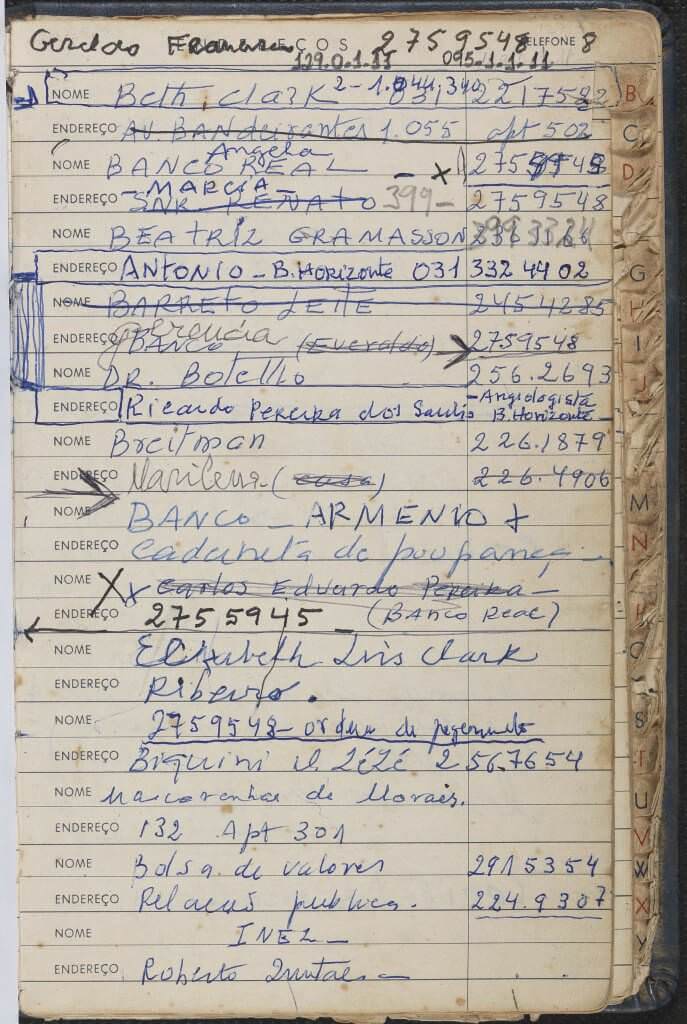 Geraldo ENDEREÇOS 2759548 TELEFONE 8
129.0.1.11 095.1.1.11
NOME Beth Clark 2-1.041,340 031 2217582 B
ENDEREÇO AV. BANdeirantes 1.055 apt 502 C
Angela
NOME BANCO REAL - X 2759548 D
- MARCIA -
ENDEREÇO SNR RENATO 399- 2759548
NOME BEATRIZ GRAMASSON
ENDEREÇO ANTONIO - B. Horizonte 031 332 4402 G
NOME BARRETO LEITE 2454285 H
gerencia
ENDEREÇO BANCO (Everaldo) 2759548 I
NOME DR. Botelho 256.2693 J
ENDEREÇO Ricardo Pereira dos Santos - Angiologista B. Horizonte -
NOME Breitman 226.1879
ENDEREÇO Marilena (casa) 226.4906
NOME BANCO - ARMENIO + M
ENDEREÇO Caderneta de poupança - N
NOME X x Carlos Eduardo Pereira -
ENDEREÇO 2755945 - (BANCO Real)
NOME Elizabeth Luis Clark O
ENDEREÇO Ribeiro.
NOME 2759548 - ordem de pagamento S
ENDEREÇO Biquini d. Zézé 2567654 T
NOME Mascarenhas de Moraes. U
ENDEREÇO 132 Apt 301 V
NOME Bolsa de valores 2915354 W
ENDEREÇO Relacus publica. 224.9307 X
NOME INEZ - Y
ENDEREÇO Roberto -